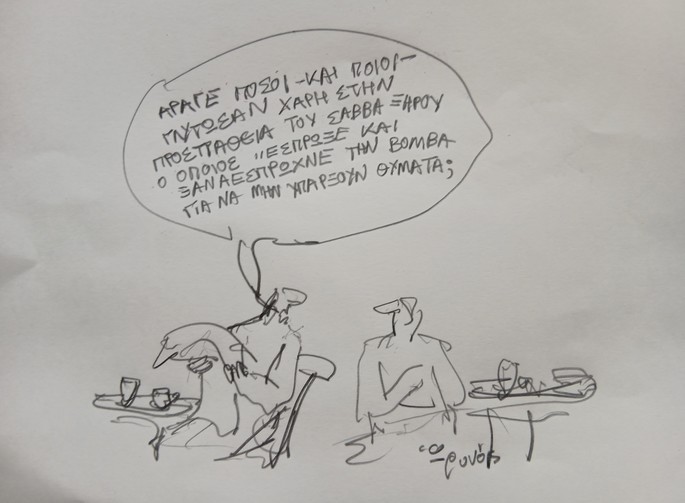 ΑΡΑΓΕ ΠΟΣΟΙ - ΚΑΙ ΠΟΙΟΙ -
ΓΛΥΤΩΣΑΝ ΧΑΡΗ ΣΤΗΝ
ΠΡΟΣΠΑΘΕΙΑ ΤΟΥ ΣΑΒΒΑ ΞΗΡΟΥ
Ο ΟΠΟΙΟΣ "ΕΣΠΡΩΞΕ ΚΑΙ
ΞΑΝΑΕΣΠΡΩΧΝΕ ΤΗΝ ΒΟΜΒΑ
ΓΙΑ ΝΑ ΜΗΝ ΥΠΑΡΞΟΥΝ ΘΥΜΑΤΑ;